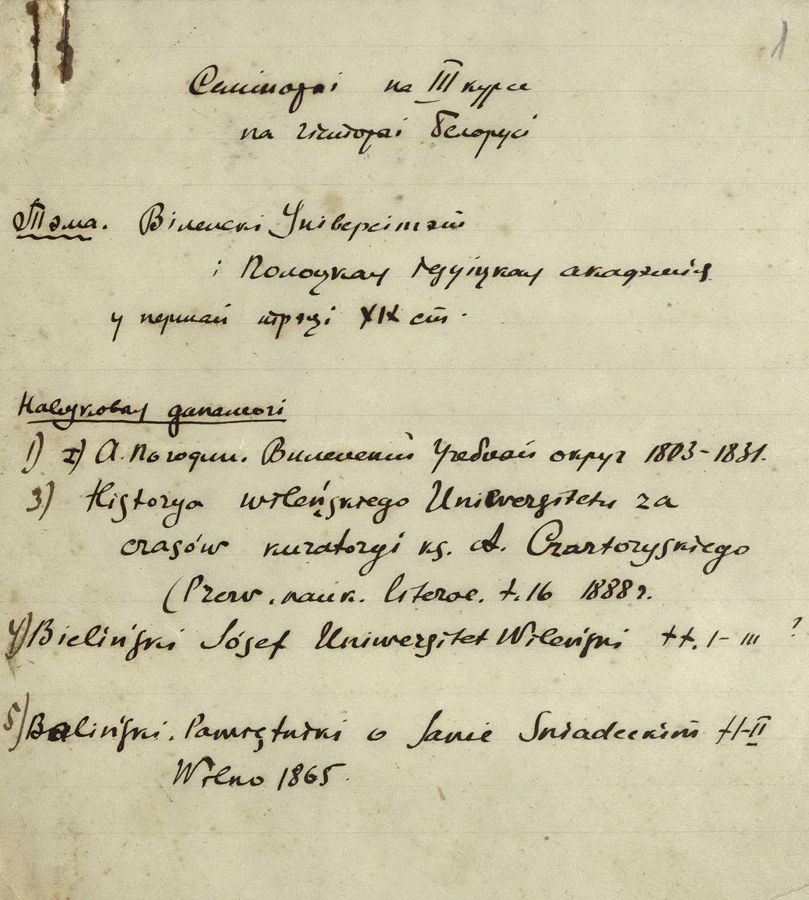 1
Сэмінарыі на III курсе
па гісторыі Беларусі
Тэма. Віленскі Універсітэт
і Полоцкая Іезуіцкая акадэмія
у першай трэці XIX ст.
Навуковая дапамогі
1) I) А. Погодин. Виленский Учебный округ 1803-1831.
3) Historya wileńskiego Uniwersitetu za
czasów kuratoryi ks. A. Czartoryskiego
(Przew. nauk. literac. t. 16 1888 г.
4) Bieliński Józef Uniwersitet Wileński tt. I-III ?
5) Baliński. Pamiętniki o Janie Sniadeckim t I-II
Wilno 1865.